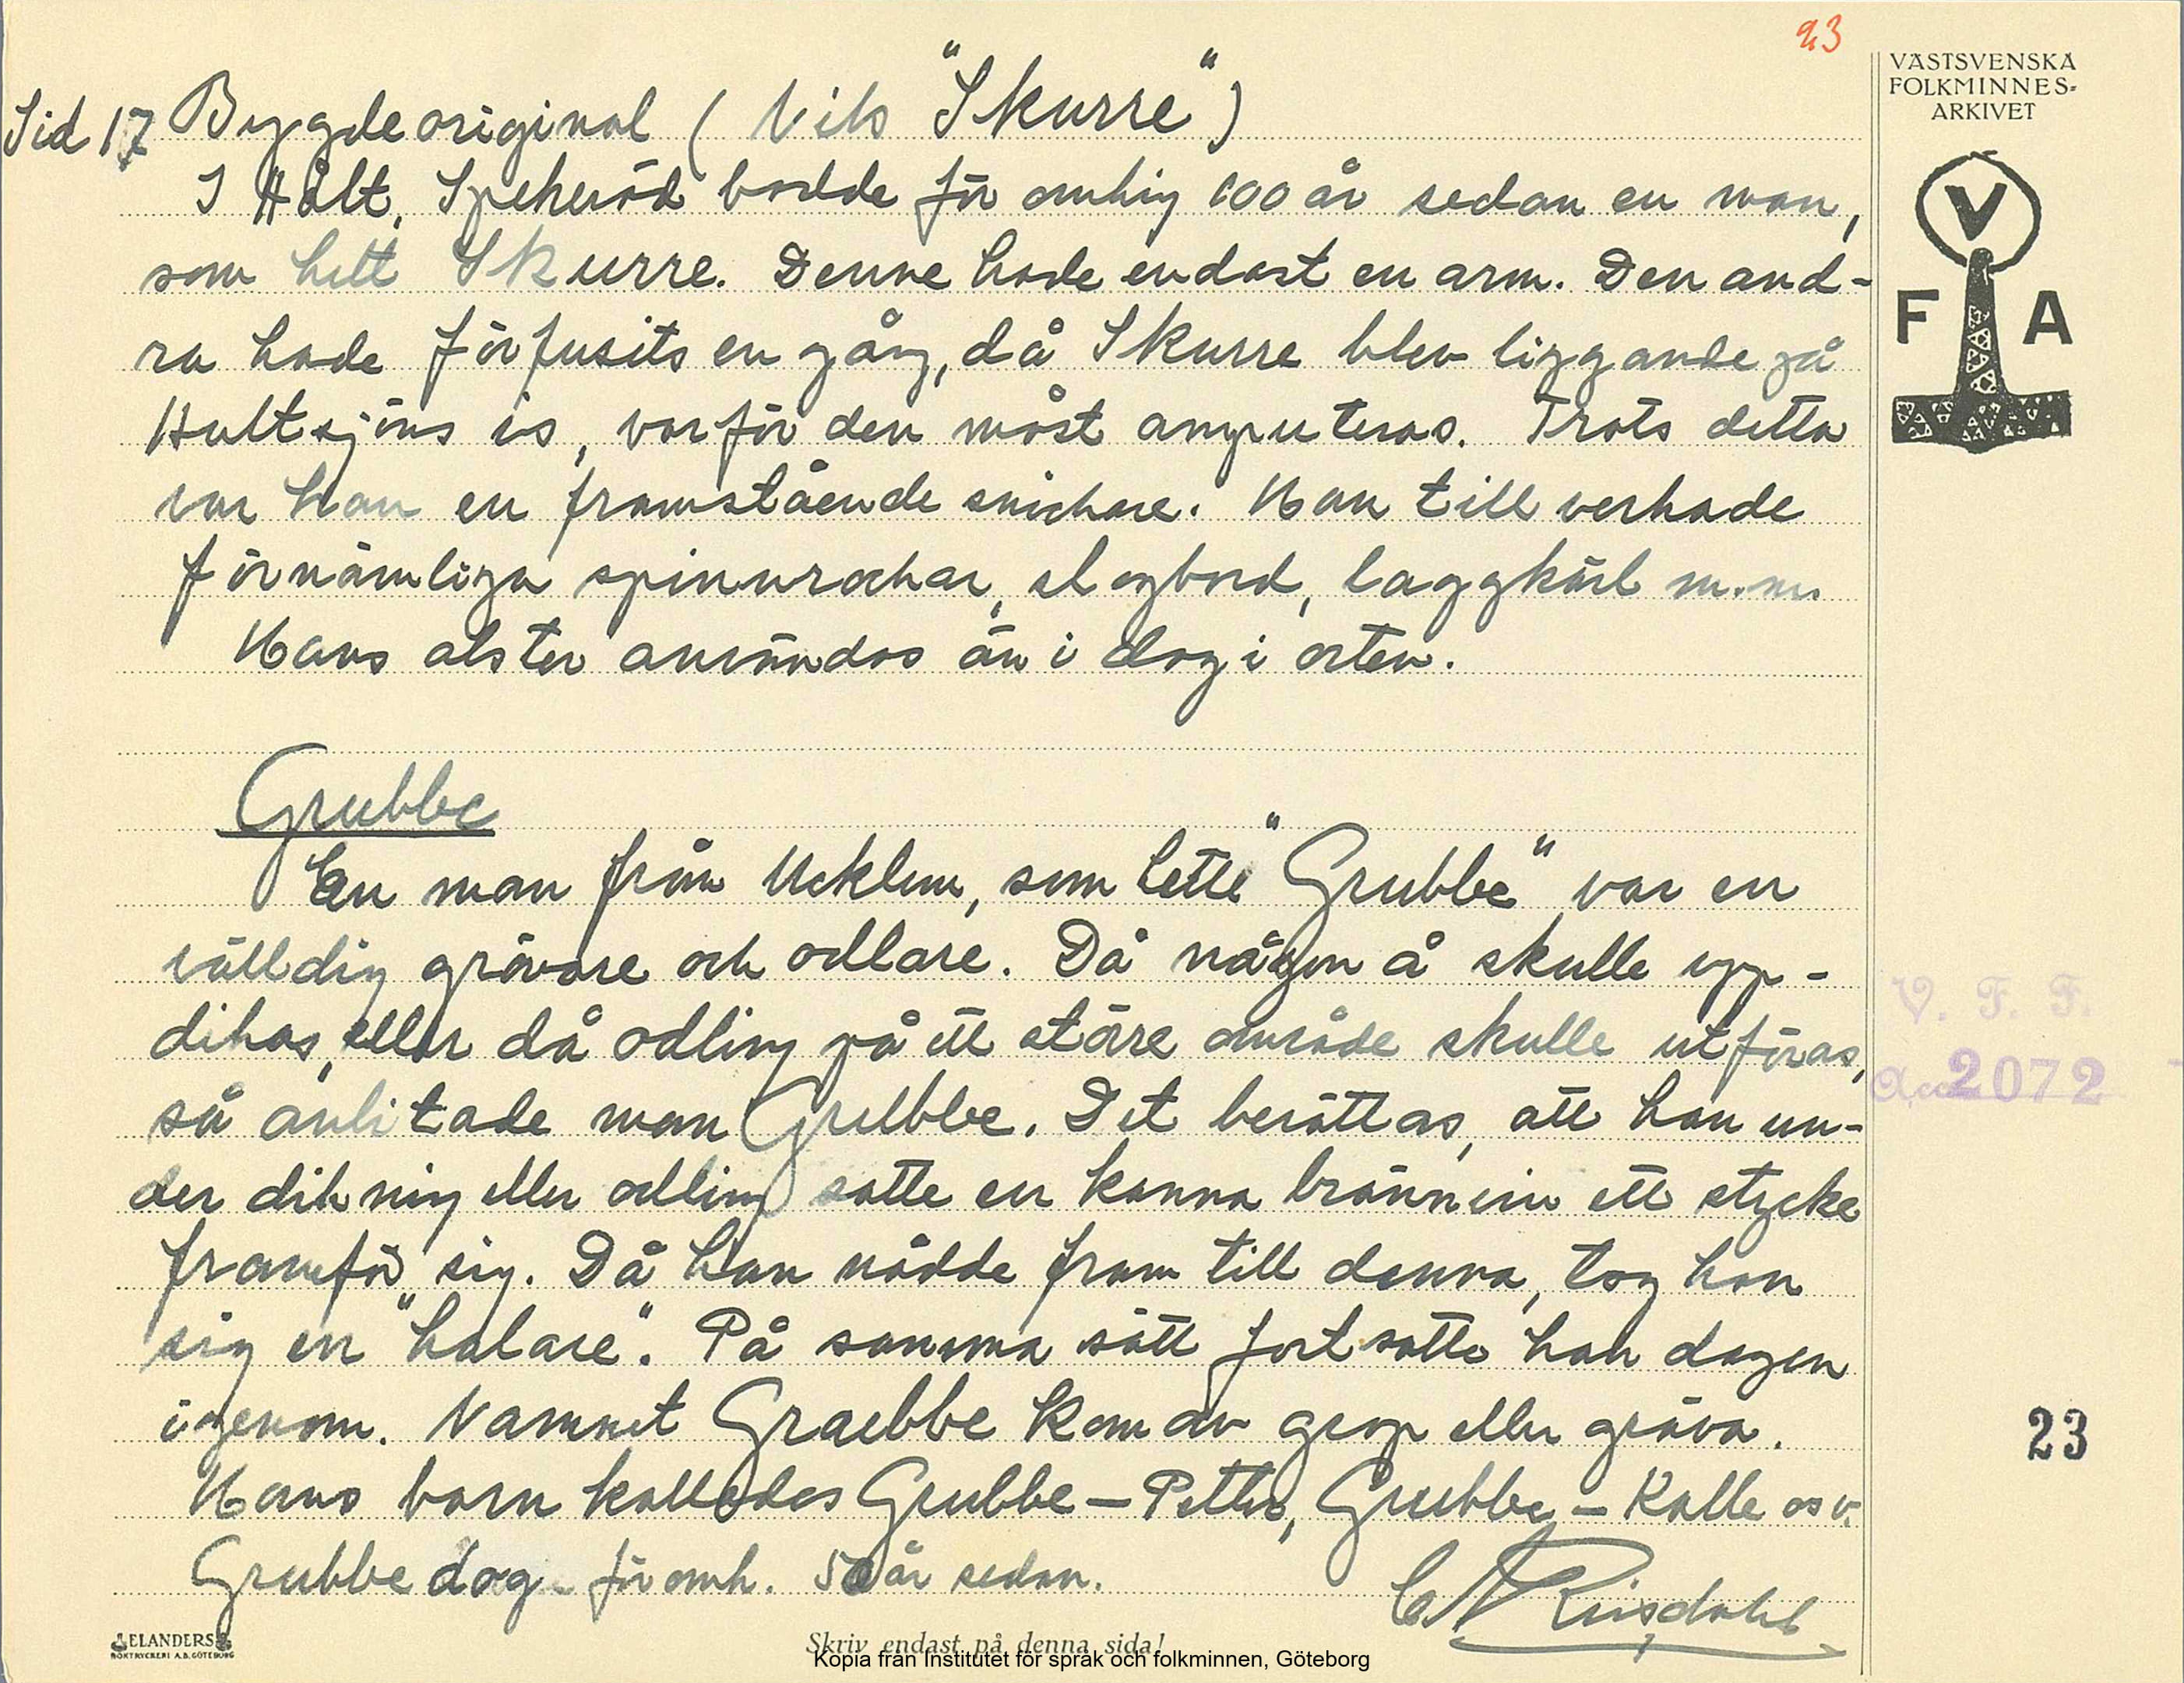 23
VÄSTSVENSKA
FOLKMINNES-
ARKIVET
V
F A
Sid 17 Bygdeoriginal ( Nils "Skurre")
I Hålt, Spekeröd bodde för omkring 100 år sedan en man,
som hett Skurre. Denne hade endast en arm. Den and-
ra hade förfusits en gång, då Skurre blev liggande på
Hultsjöns is, varför den måst amputeras. Trots detta
var han en framstående snickare. Han tillverkade
förnämliga spinnrockar, slagbord, laggkärl m.m.
Hans alster användas än i dag i orten.
Grubbe
En man från Ucklum, som hette "Grubbe" var en
välldig grävare och odlare. Då någon å skulle upp-
dikas, eller då odling på ett större område skulle utföras,
så anlitade man Grubbe. Det berättas, att han un-
der dikning eller odling satte en kanna brännvin ett stycke
framför sig. Då han nådde fram till denna, tog han
sig en "halare". På samma sätt fortsatte han dagen
igenom. Namnet Grubbe kom av grop eller gräva.
Hans barn kallades Grubbe - Petter, Grubbe - Kalle osv.
Grubbe dog för omk. 50 år sedan.
C N Risdahl
V. F. F.
Acc 2072
23
ELANDERS
BOKTRYCKERI A.B. GÖTEBORG
Skriv endast på denna sida!
Kopia från Institutet för språk och folkminnen, Göteborg